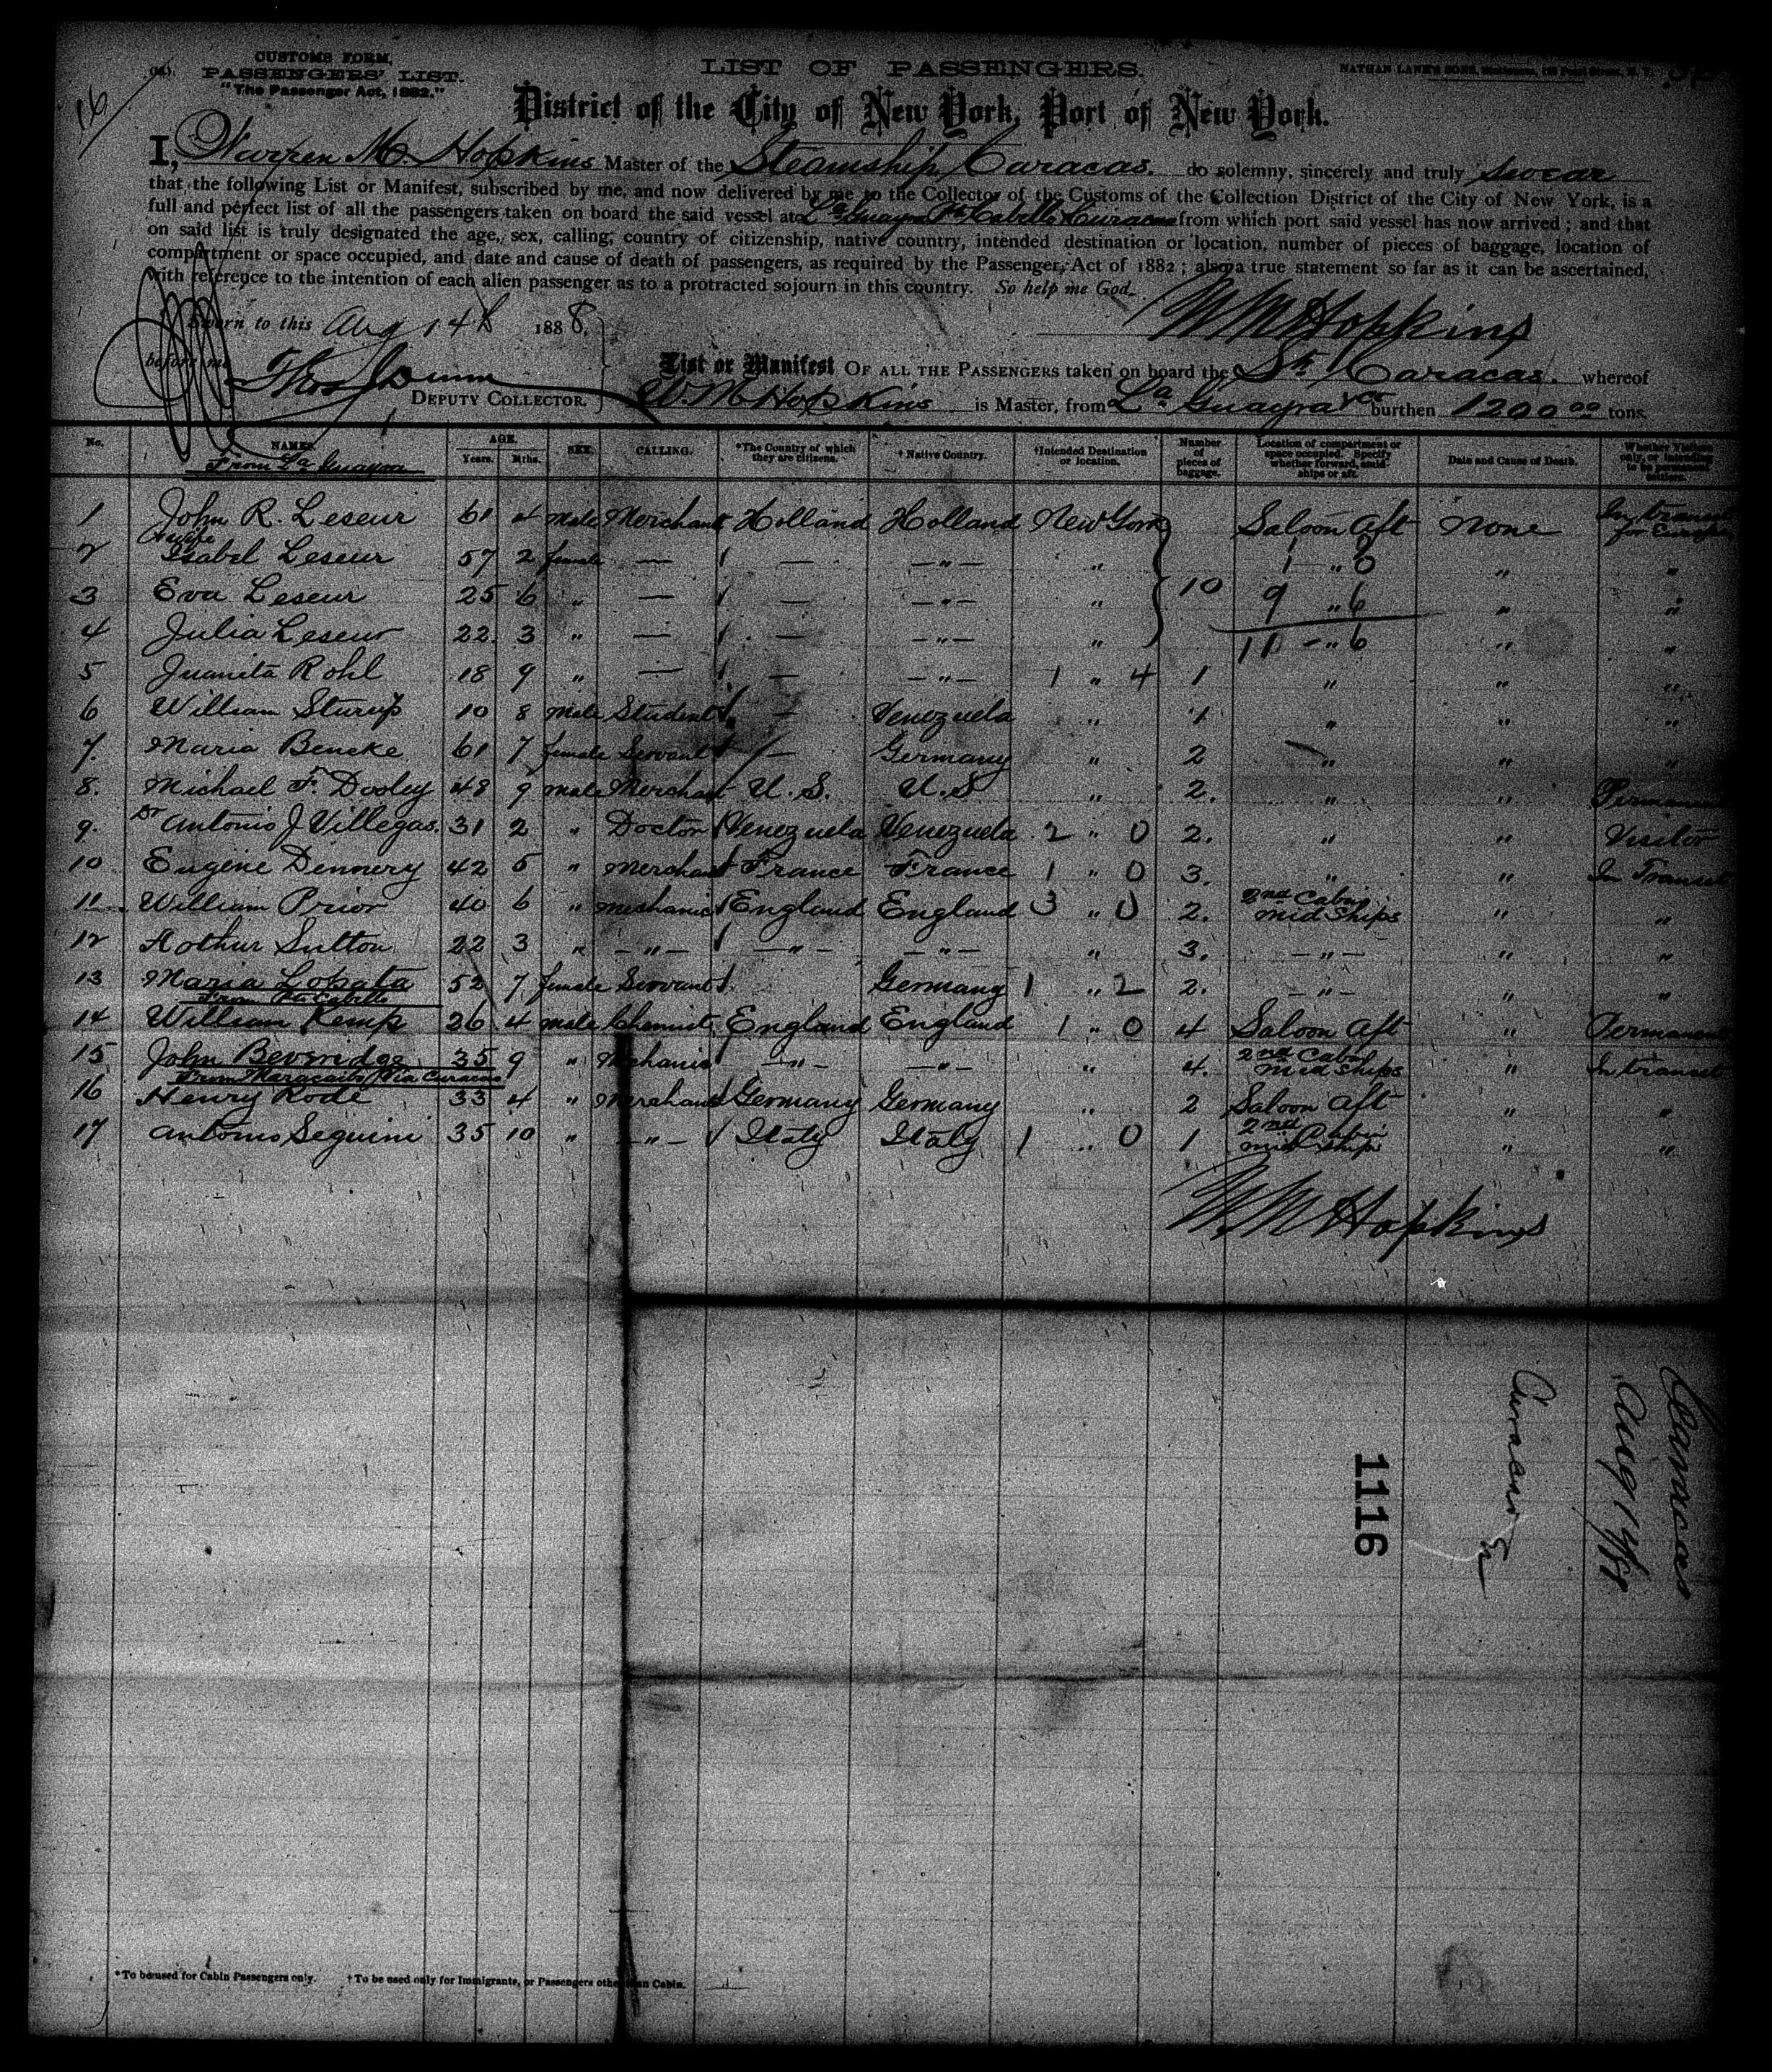 CUSTOMS FORM.
PASSENGERS' LIST.
"The Passenger Act, 1882."
16
LIST OF PASSENGERS.
NATHAN LANE'S SONS,
District of the City of New York, Port of New York.
I, Warren M. Hopkins Master of the Steamship Caracas. do solemny, sincerely and truly swear
that the following List or Manifest, subscribed by me, and now delivered by me to the Collector of the Customs of the Collection District of the City of New York, is a
full and perfect list of all the passengers taken on board the said vessel at La Guayra Pto Cabello Curacao from which port said vessel has now arrived; and that
on said list is truly designated the age, sex, calling, country of citizenship, native country, intended destination or location, number of pieces of baggage, location of
compartment or space occupied, and date and cause of death of passengers, as required by the Passenger Act of 1882; also a true statement so far as it can be ascertained,
with reference to the intention of each alien passenger as to a protracted sojourn in this country. So help me God.
Sworn to this Aug 14th 1888.
W M Hopkins
before me
Thos Dunn
DEPUTY COLLECTOR.
List or Manifest OF ALL THE PASSENGERS taken on board the Str Caracas. whereof
W. M. Hopkins is Master, from La Guayra burthen 1200 00 tons.
No. NAMES. AGE. Years. Mths. SEX. CALLING. *The Country of which they are citizens. †Native Country. †Intended Destination or location. Number of pieces of baggage. Location of compartment or space occupied. Specify whether forward, amidships or aft. Date and Cause of Death. Whether Visitors only, or intending to be permanent settlers.
From La Guayra
1 John R. Leseur 61 4 Male Merchant Holland Holland New York Saloon Aft None In transit for Europe
& wife
2 Isabel Leseur 57 2 female — — — " — " 1 " 8 " "
3 Eva Leseur 25 6 " — — — " — " 10 9 " 6 " "
4 Julia Leseur 22. 3 " — — — " — " 11 — " 6 " "
5 Juanita Rohl 18 9 " — — — " — 1 " 4 1 " " "
6 William Sturup 10 8 Male Student — Venezuela " 1 " " "
7. Maria Beneke 61 7 female Servant — Germany " 2 " " "
8. Michael F. Dooley 48 9 male Merchant U.S. U.S " 2. " " Permanent
9. Dr Antonio J Villegas. 31 2 " Doctor Venezuela Venezuela 2 " 0 2. " " Visitor
10 Eugene Dennery 42 5 " Merchant France France 1 " 0 3. " " In Transit
11 William Prior 40 6 " Mechanic England England 3 " 0 2. 2nd Cabin mid Ships " "
12 Arthur Sutton 22 3 " — " — — " — — " — " 3. — " — " "
13 Maria Lopata 52 7 female Servant Germany 1 " 2 2. — " — " "
From Pto Cabello
14 William Kemp 26 4 male Chemist England England 1 " 0 4 Saloon Aft " Permanent
15 John Beveridge 35 9 " Mechanic — " — — " — " 4. 2nd Cabin mid Ships " In transit
From Maracaibo Via Curacao
16 Henry Rode 33 4 " Merchant Germany Germany " 2 Saloon Aft " "
17 Antonio Seguini 35 10 " — " — Italy Italy 1 " 0 1 2nd Cabin mid ships " "
W. M Hopkins
Caracas
Aug 14/88
1116
*To be used for Cabin Passengers only. †To be used only for Immigrants, or Passengers other than Cabin.